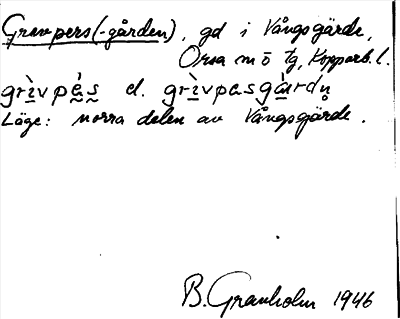 Grevpers(-gården), gd i Vångsgärde,
Orsa sn ö tg, Kopparb. l.
grìvpȧ̀s d. grìvpasgàrdn̥
Läge: norra delen av Vångsgärde.
B. Granholm 1946